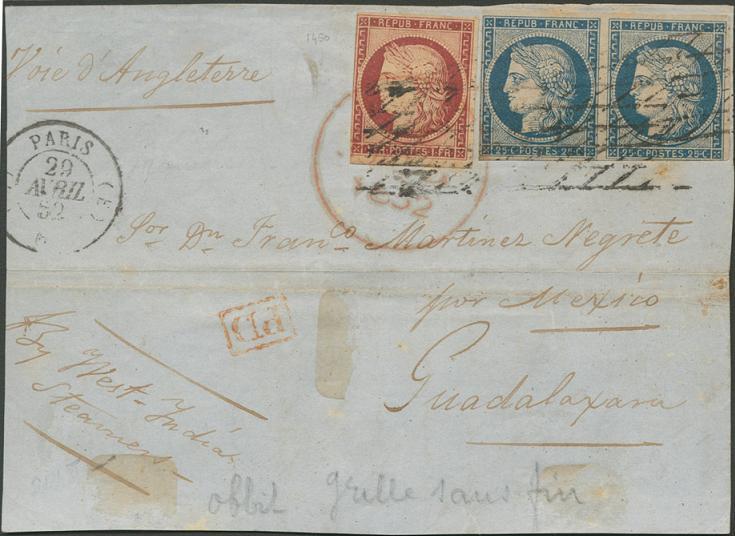 1450
REPUB. FRANC.
1. FR. POSTES 1. FR
REPUB. FRANC.
25 C. POSTES 25 C.
REPUB. FRANC.
25 C. POSTES 25 C.
Voie d'Angleterre
PARIS
29
AVRIL
52
(E)
1852
Sor. Dn. Franco. Martinez Negrete
por Mexico
Guadalaxara
PD
By West-India
Steamers
oblit grille sans fin